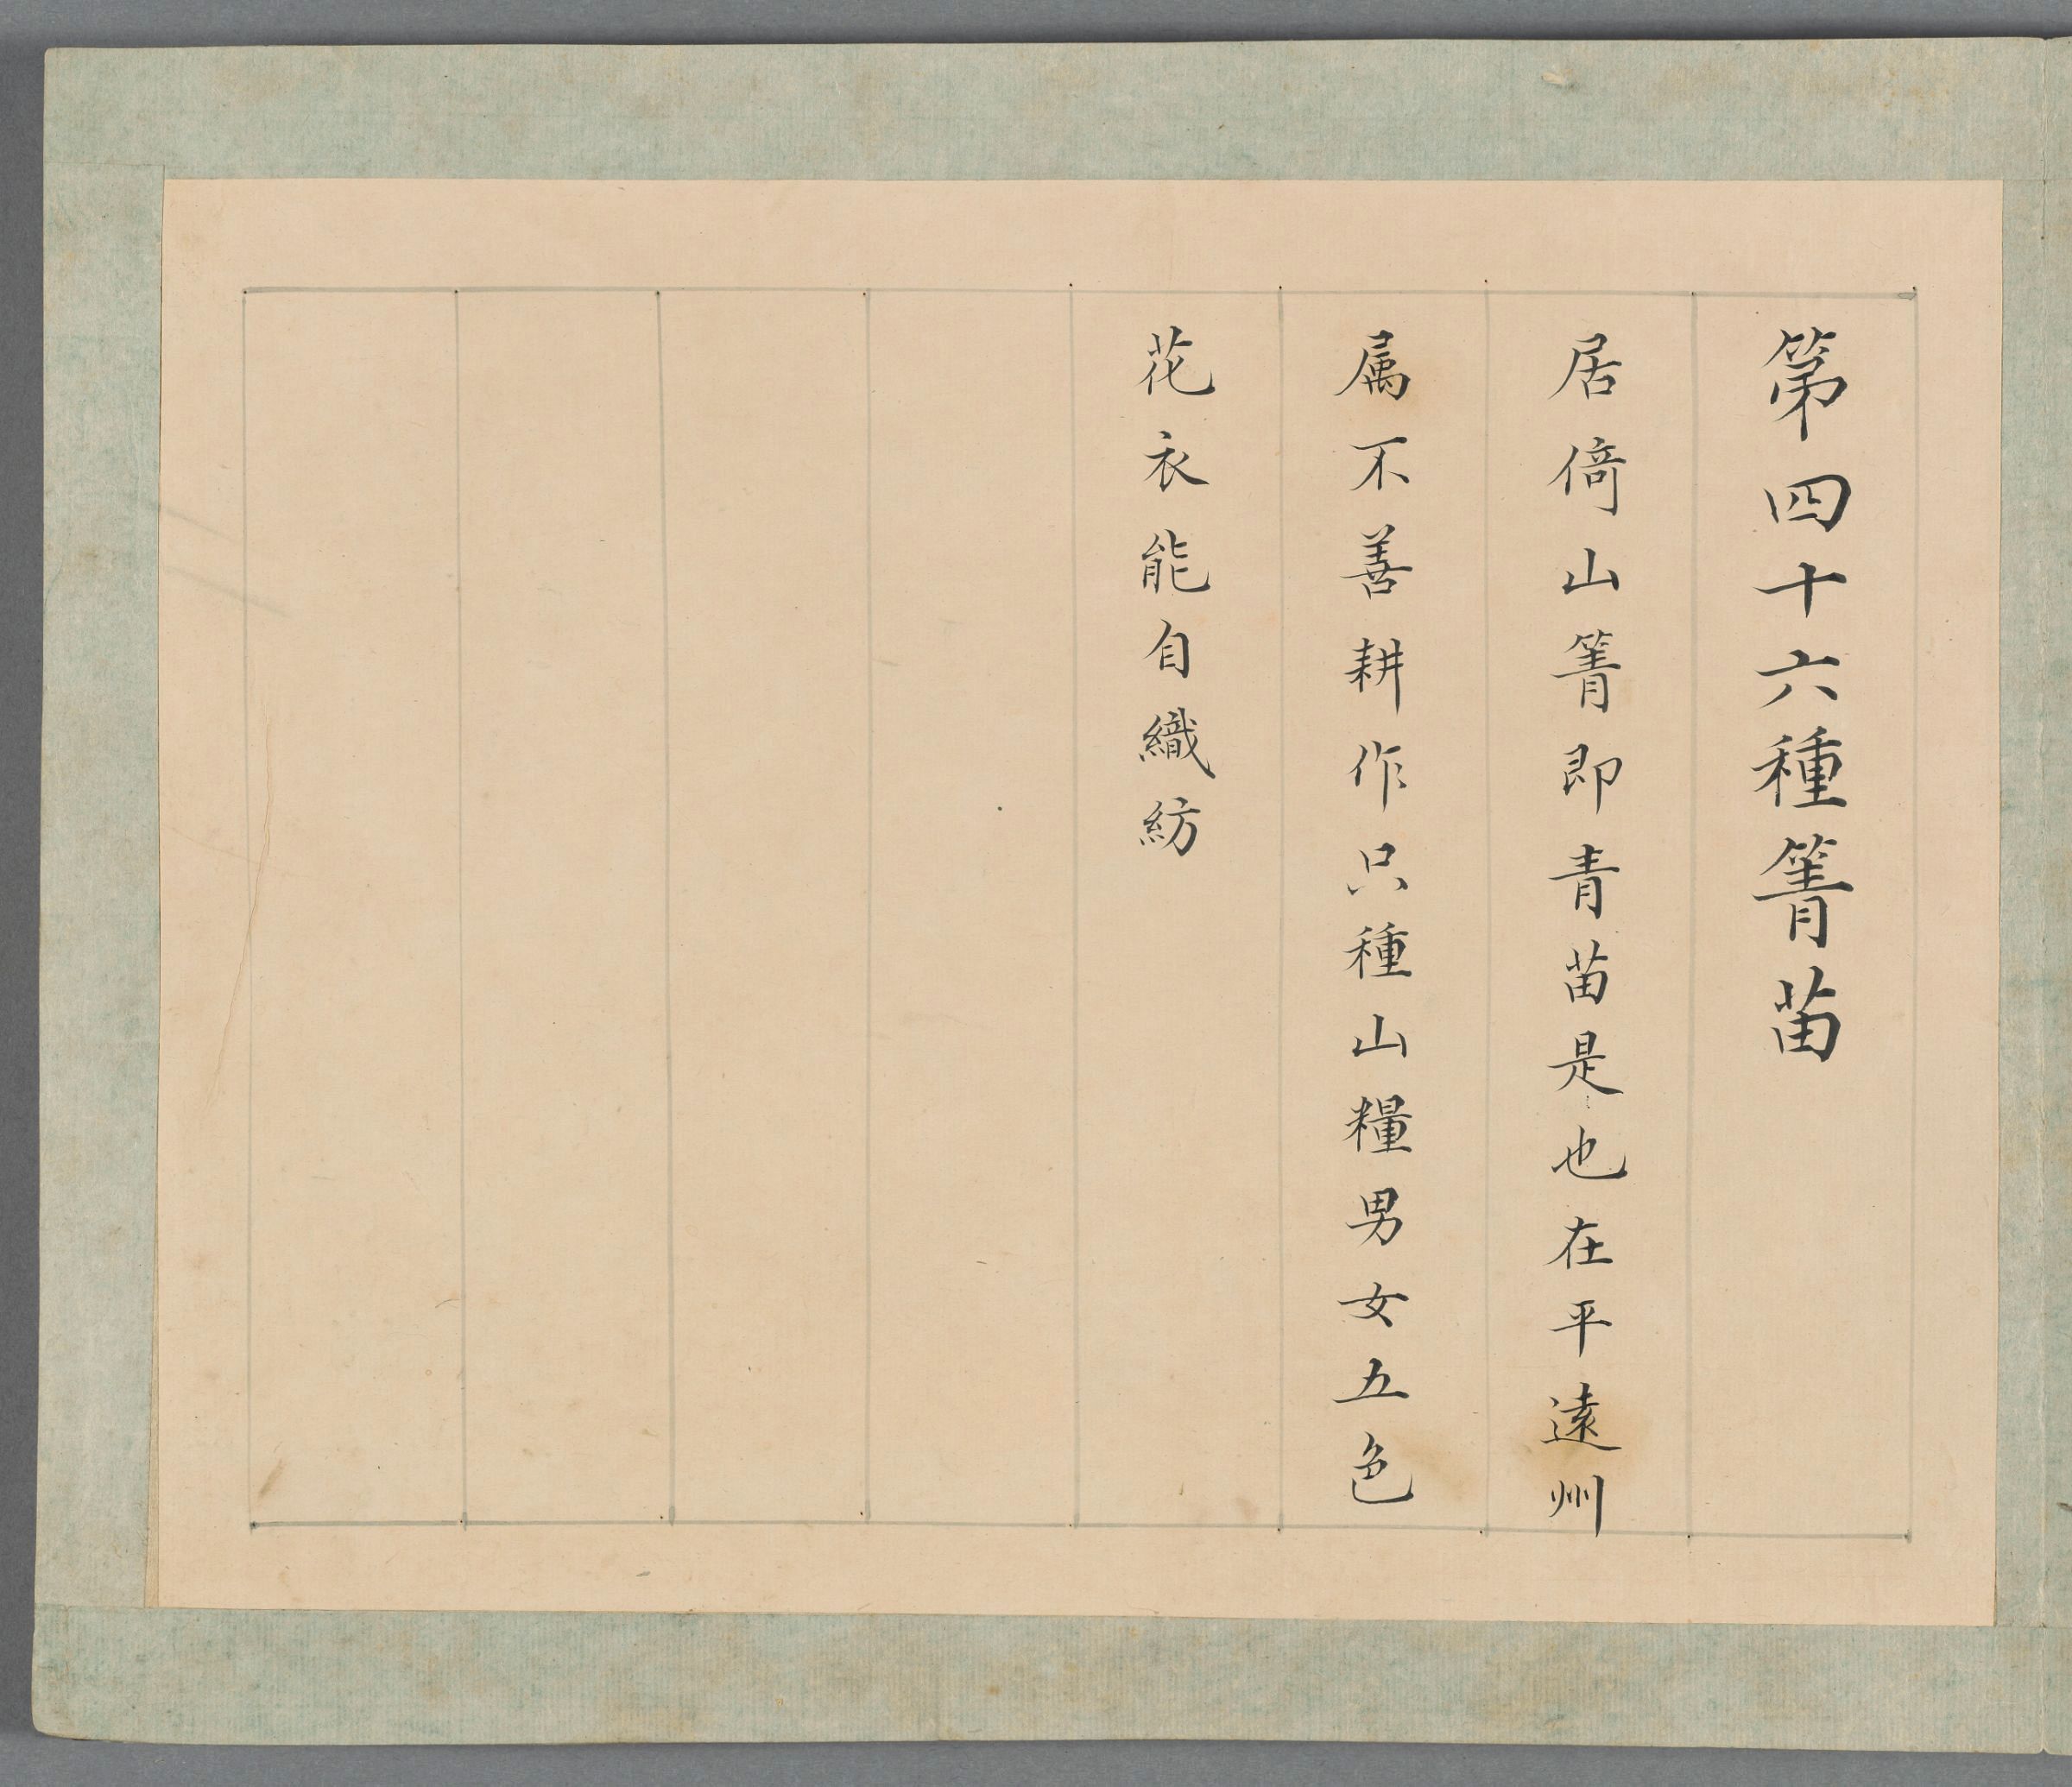 第四十六種箐苗
居倚山箐即青苗是也在平遠州
属不善耕作只種山糧男女五色
花衣能自織紡